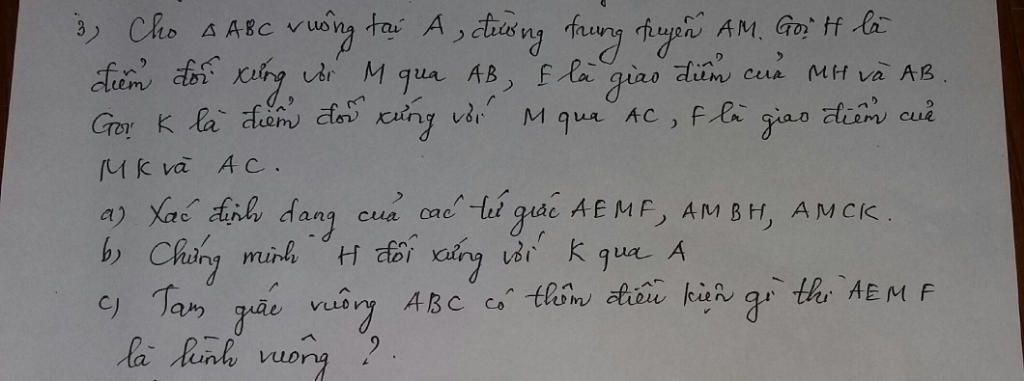 3) Cho △ ABC vuông tại A, đường trung tuyến AM. Gọi H là
điểm đối xứng với M qua AB, E là giao điểm của MH và AB.
Gọi K là điểm đối xứng với M qua AC, F là giao điểm của
MK và AC.
a) Xác định dạng của các tứ giác AEMF, AMBH, AMCK.
b) Chứng minh H đối xứng với K qua A
c) Tam giác vuông ABC có thêm điều kiện gì thì AEMF
là hình vuông ?.